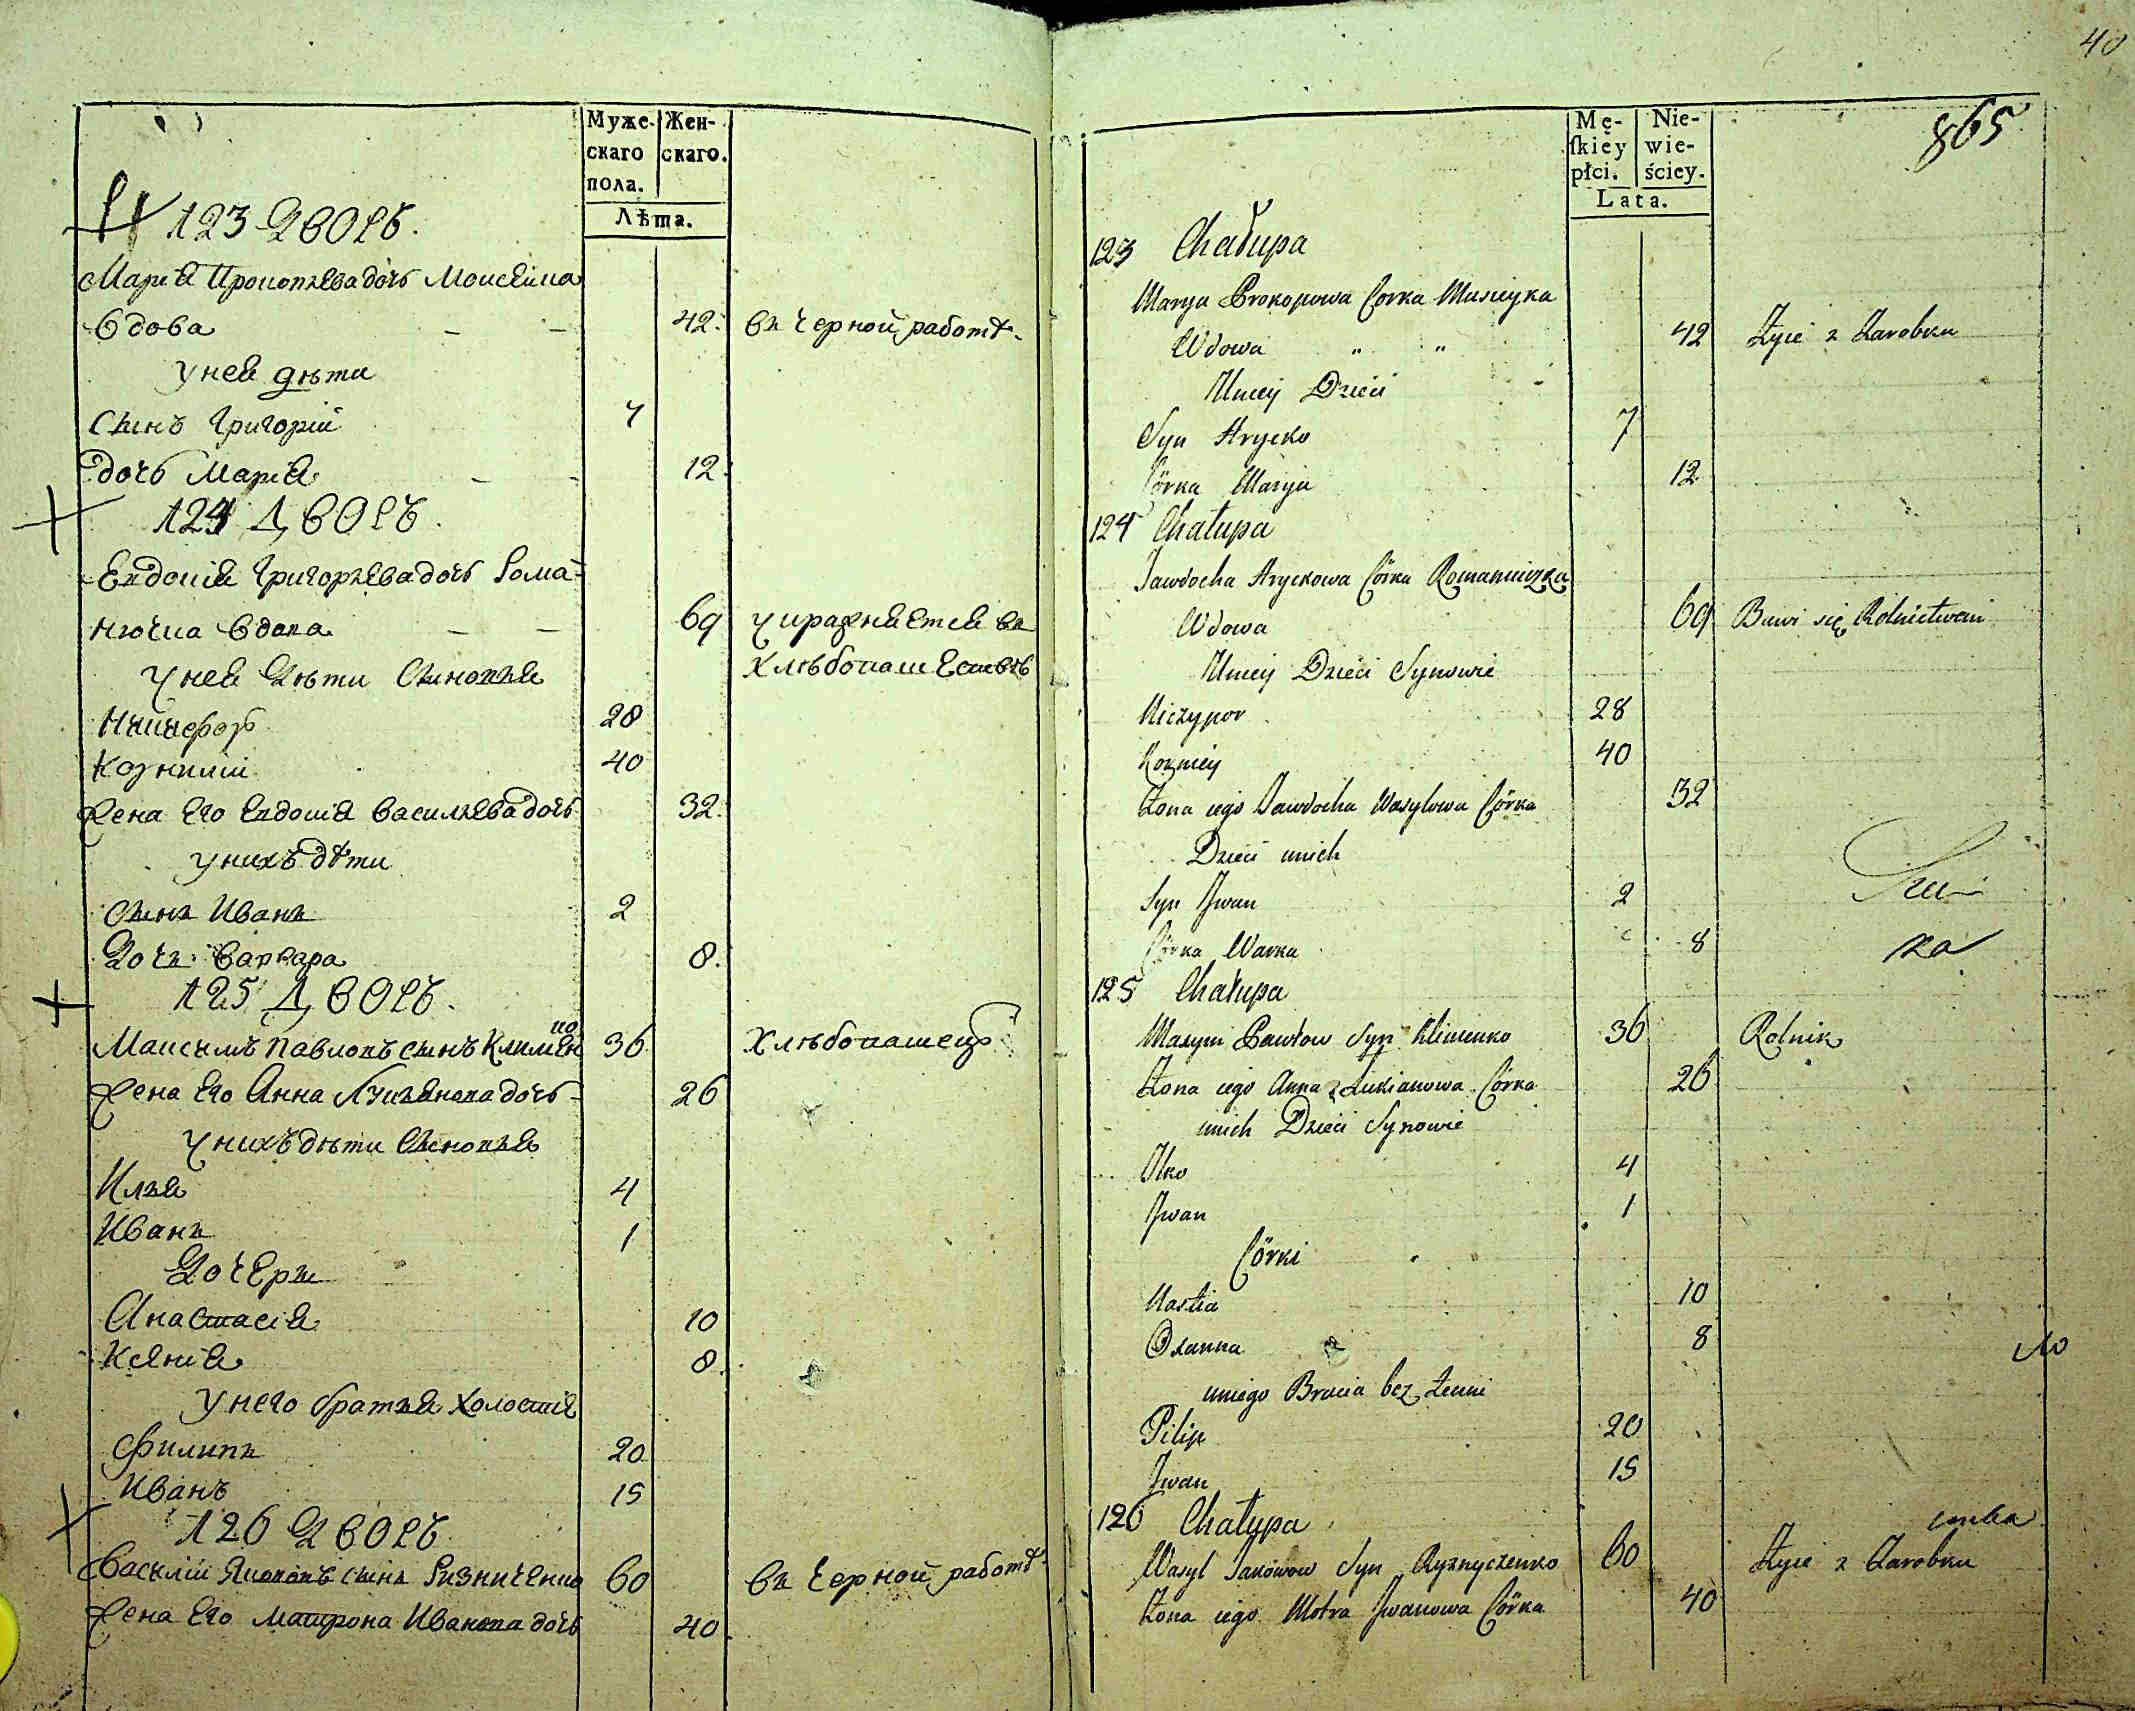 Муже-
скаго
пола.
Жен-
скаго.
Лѣта.
123 Дворъ.
Марія Прокопьева дочь Моисейка
вдова 42. въ черной работѣ.
у ней дѣти
Сынъ Григорій 7
дочь Марія 12.
124 Дворъ.
Евдокія Григорьева дочь Рома-
нючка вдова 69 упражняется въ
хлѣбопашествѣ
у ней Дѣти Сыновья
Никифоръ 28
Козьмій 40
Жена Его Евдокія Васильева дочь 32.
у нихъ дѣти
Сынъ Иванъ 2
Дочь Варвара 8.
125 Дворъ.
Максимъ Павловъ сынъ Клименко 36 Хлѣбопашецъ
Жена Его Анна Лукьянова дочь 26
у нихъ дѣти Сыновья
Илья 4
Иванъ 1
Дочери
Анастасія 10
Ксенія 8.
у него братья холостія
Филипъ 20
Иванъ 15
126 Дворъ
Василій Якововъ сынъ Ризниченко 60 въ черной работѣ
Жена Его Матрона Иванова дочь 40
40
865
Mę-
ſkiėy
płci.
Nie-
wie-
ściey.
Lata.
123 Chałupa
Marya Prokopowa Corka Musieyka
Wdowa " " 42 Żyie z Zarobku
Uniey Dzieci
Syn Hrycko 7
Córka Marya 12
124 Chałupa
Jawdocha Hryckowa Córka Romaniuczka
Wdowa 69 Bawi się Rolnictwem
Uniey Dzieci Synowie
Niczypor 28
Kozmiey 40
Żona iego Jawdocha Wasylowa Córka 32
Dzieci unich
Syn Jwan 2
Córka Warka 8
ka
125 Chałupa
Maxym Pawłow Syn Klimenko 36 Rolnik
Żona iego Anna Łukianowa Córka 26
unich Dzieci Synowie
Ilko 4
Jwan 1
Córki
Nastia 10
Oxanna 8
uniego Bracia bez żenni
Pilip 20
Jwan 15
126 Chałupa
Wasyl Jakowow Syn Ryznyczenko 60 Żyie z Zarobku
Żona iego Motra Jwanowa Córka 40